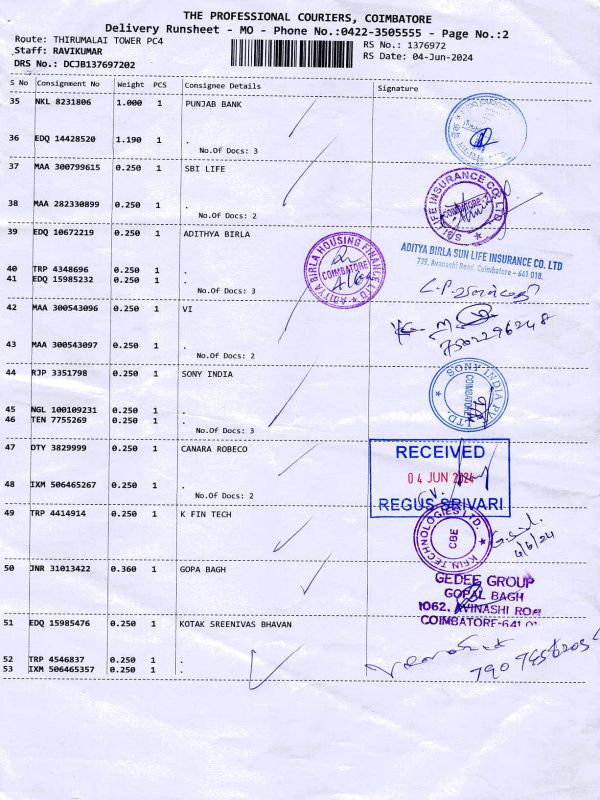 THE PROFESSIONAL COURIERS, COIMBATORE
Delivery Runsheet - MO - Phone No.:0422-3505555 - Page No.:2
Route: THIRUMALAI TOWER PC4
RS No.: 1376972
Staff: RAVIKUMAR
RS Date: 04-Jun-2024
DRS No.: DCJB137697202
S No Consignment No Weight PCS Consignee Details Signature
35 NKL 8231806 1.000 1 PUNJAB BANK
36 EDQ 14428520 1.190 1 .
No.Of Docs: 3
37 MAA 300799615 0.250 1 SBI LIFE
38 MAA 282330899 0.250 1 .
No.Of Docs: 2
SBI LIFE INSURANCE CO. LTD
COIMBATORE-2
39 EDQ 10672219 0.250 1 ADITHYA BIRLA
ADITYA BIRLA HOUSING FINANCE LTD
COIMBATORE
ADITYA BIRLA SUN LIFE INSURANCE CO. LTD
739, Avanashi Road, Coimbatore - 641 018.
40 TRP 4348696 0.250 1 .
41 EDQ 15985232 0.250 1 .
No.Of Docs: 3
42 MAA 300543096 0.250 1 VI
7502296248
43 MAA 300543097 0.250 1 .
No.Of Docs: 2
44 RJP 3351798 0.250 1 SONY INDIA
SONY INDIA PVT LTD
COIMBATORE
45 NGL 100109231 0.250 1 .
46 TEN 7755269 0.250 1 .
No.Of Docs: 3
47 DTY 3829999 0.250 1 CANARA ROBECO
RECEIVED
04 JUN 2024
REGUS SRIVARI
48 IXM 506465267 0.250 1 .
No.Of Docs: 2
49 TRP 4414914 0.250 1 K FIN TECH
KFIN TECHNOLOGIES LTD.
CBE
4/6/24
50 JNR 31013422 0.360 1 GOPA BAGH
GEDEE GROUP
GOPAL BAGH
1062, AVINASHI ROAD
COIMBATORE-641 01
51 EDQ 15985476 0.250 1 KOTAK SREENIVAS BHAVAN
52 TRP 4546837 0.250 1 .
53 IXM 506465357 0.250 1 .